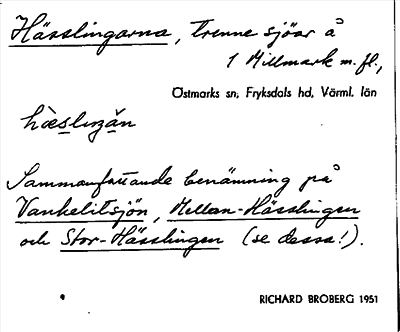 Hässlingarna, trenne sjöar å
1 Millmark m. fl.,
Östmarks sn, Fryksdals hd, Värml. län
hæ̀slıŋan
Sammanfattande benämning på
Vankelitsjön, Mellan-Hässlingen
och Stor-Hässlingen (se dessa!).
RICHARD BROBERG 1951